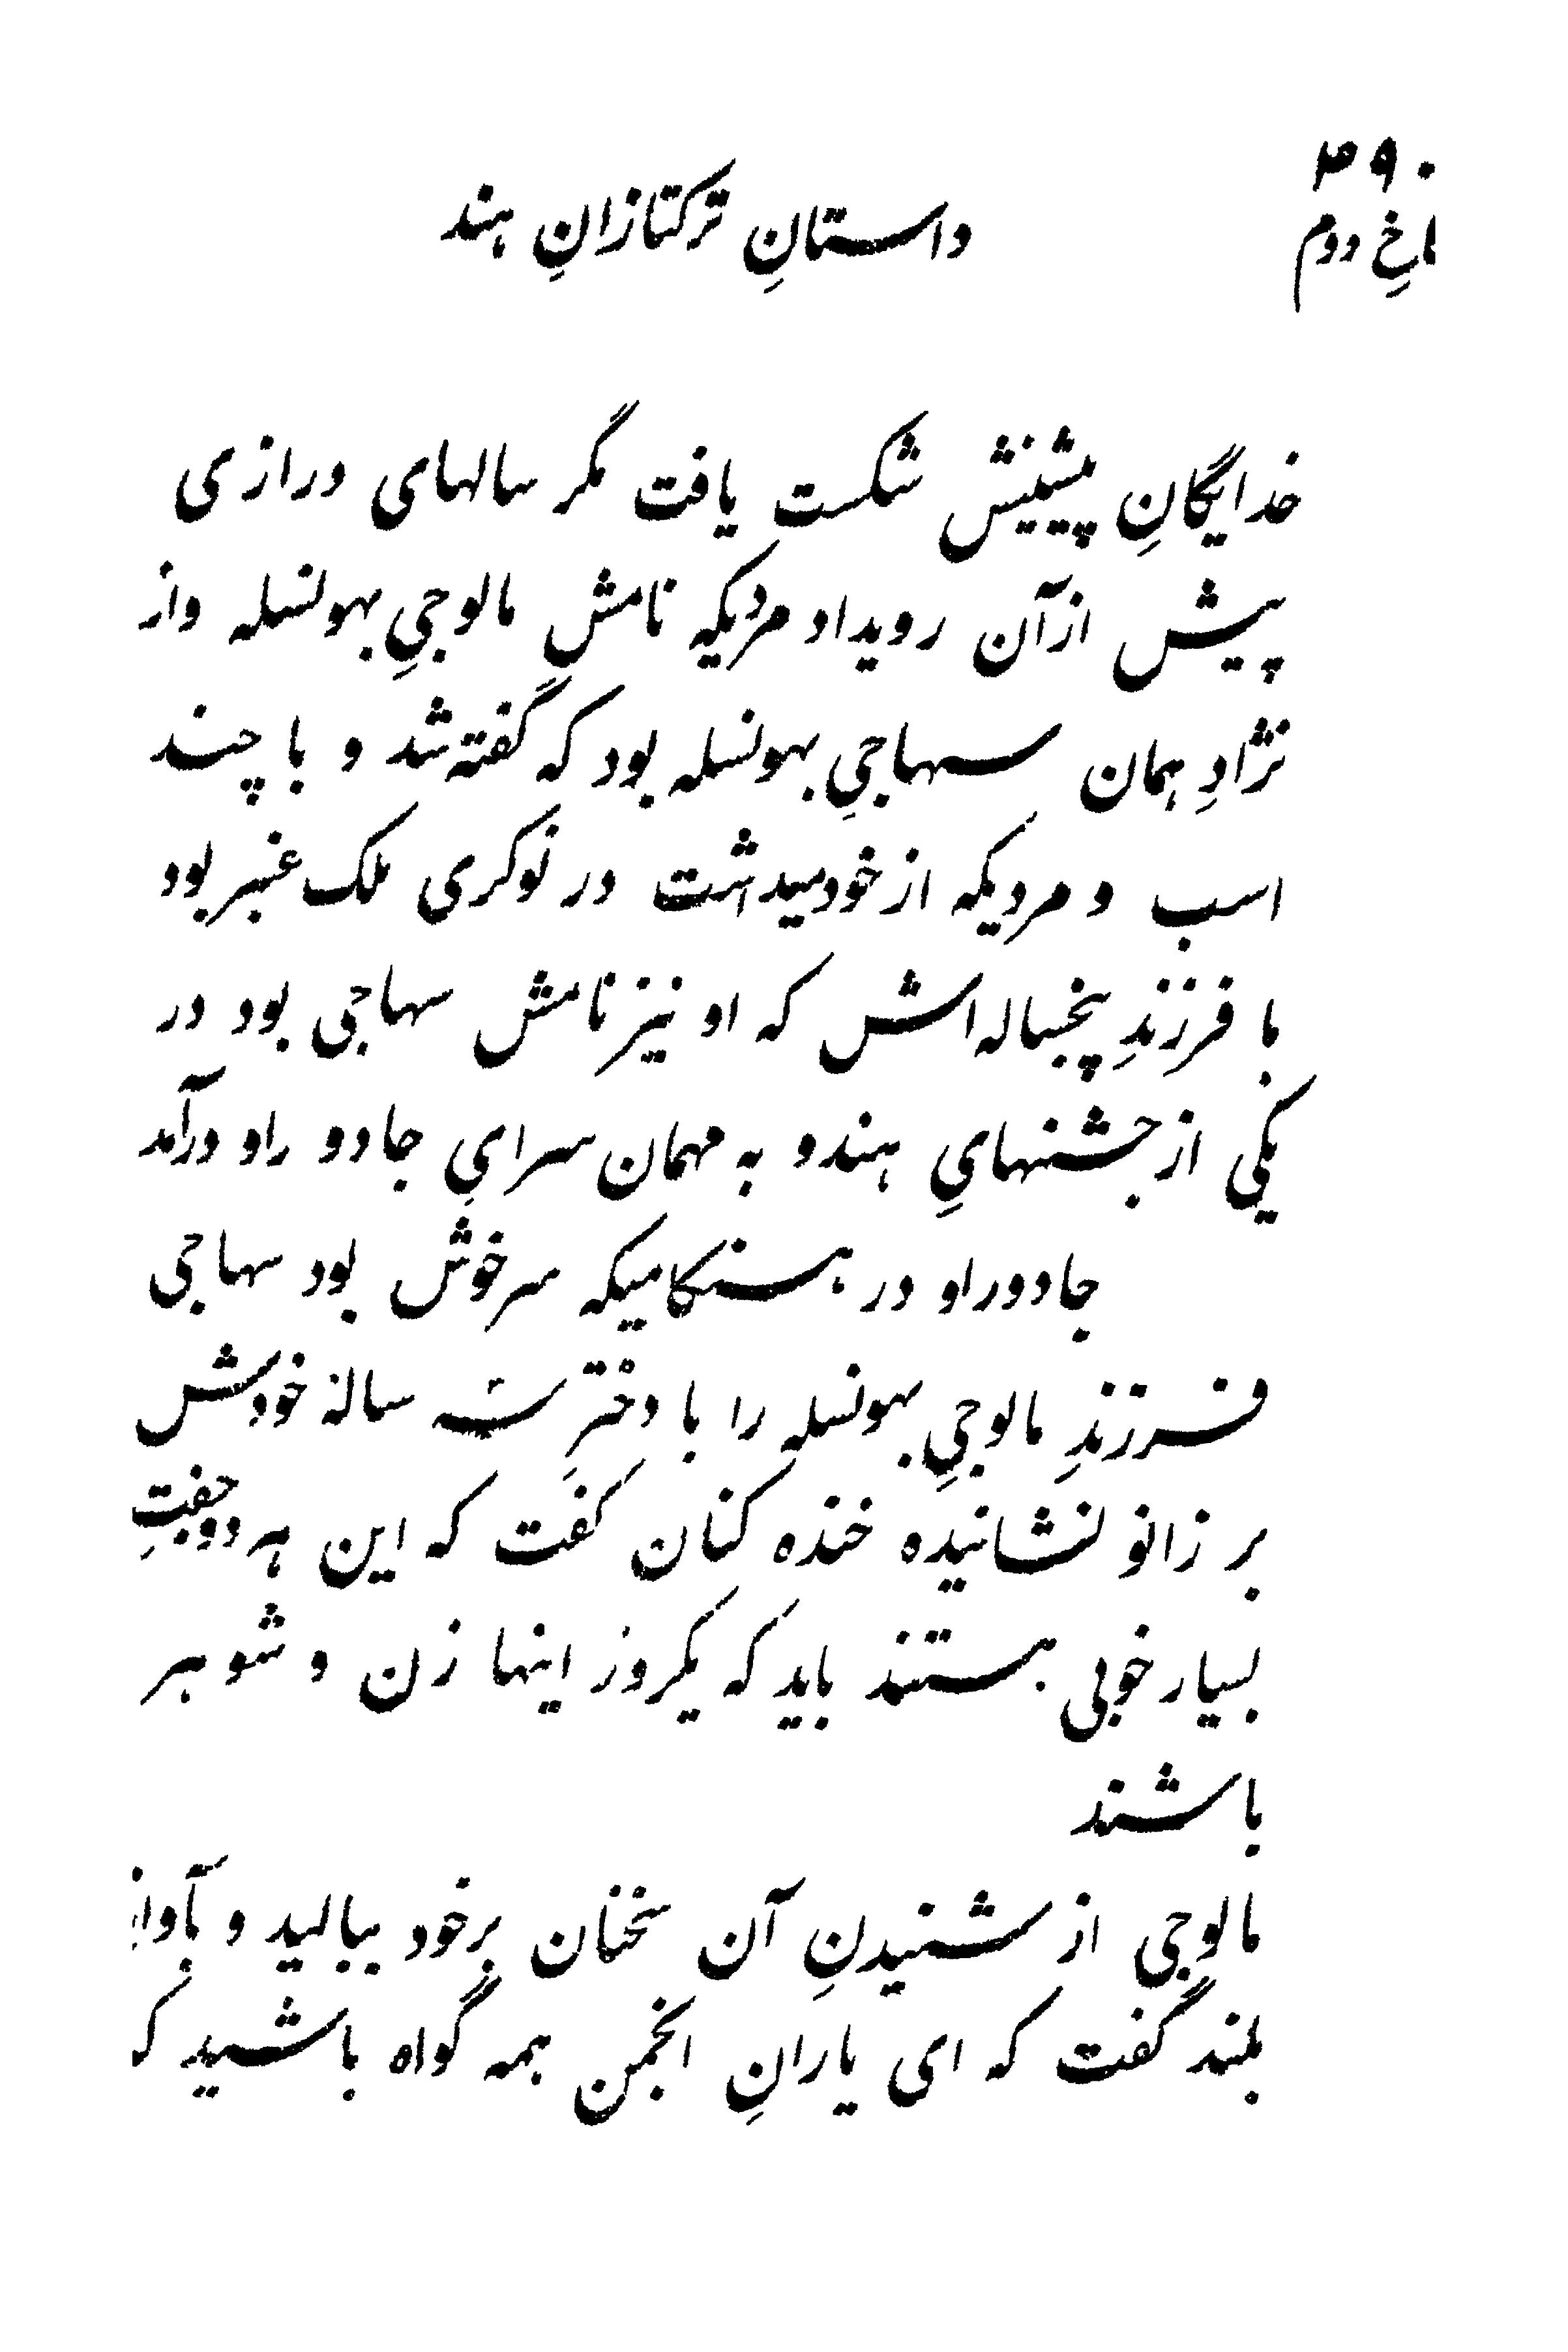 ۳۹۰
داستانِ ترکتازانِ هند
کاخِ دوم
خدایگانِ پیشینش شکست یافت مگر سالهای درازی
پیش ازآن رویداد مردیکه نامش مالوجیِ بهونسله واز
نژادِ همان سهاجیِ بهونسله بود که گفته شد و با چند
اسب و مردیکه از خود میداشت در نوکری ملک عنبر بود
با فرزندِ پنجساله اش که او نیز نامش سهاجی بود در
یکی از جشنهایِ هندو به مهمان سرایِ جادو راو درآمد
جادوراو در هنگامیکه سرخوش بود سهاجی
فرزندِ مالوجیِ بهونسله را با دخترِ سه سالهٔ خودش
بر زانو نشانیده خنده کنان گفت که این هر دو جفتِ
بسیار خوبی هستند باید که یکروز اینها زن و شوهر
باشند
مالوجی از شنیدنِ آن سخنان برخود ببالید و بآواز
بلند گفت که ای یارانِ انجمن همه گواه باشید که